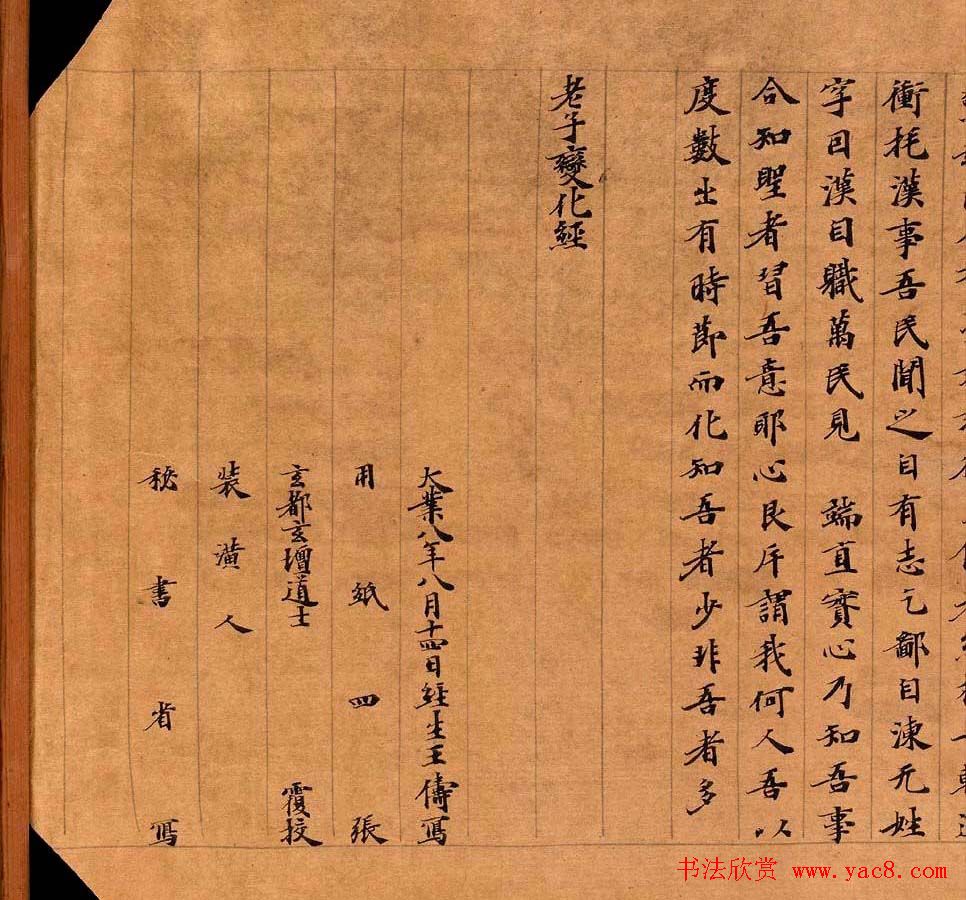 衝托漢事吾民聞之自有志乞鄙自涑无姓
字因漢自職萬民見 端直實心乃知吾事
合知聖者習吾意耶心艮斥謂我何人吾以
度數出有時節而化知吾者少非吾者多
老子變化經
大業八年八月十四日經生王儔寫
用紙四張
玄都玄壇道士 覆校
装潢人
秘書省寫
书法欣赏 www.yac8.com